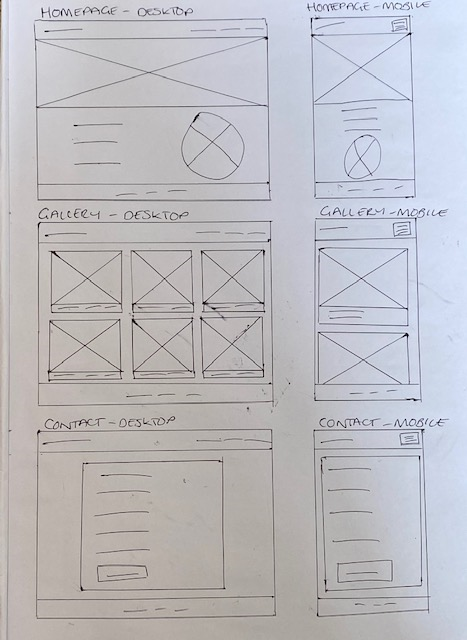 HOMEPAGE - DESKTOP
HOMEPAGE - MOBILE
GALLERY - DESKTOP
GALLERY - MOBILE
CONTACT - DESKTOP
CONTACT - MOBILE